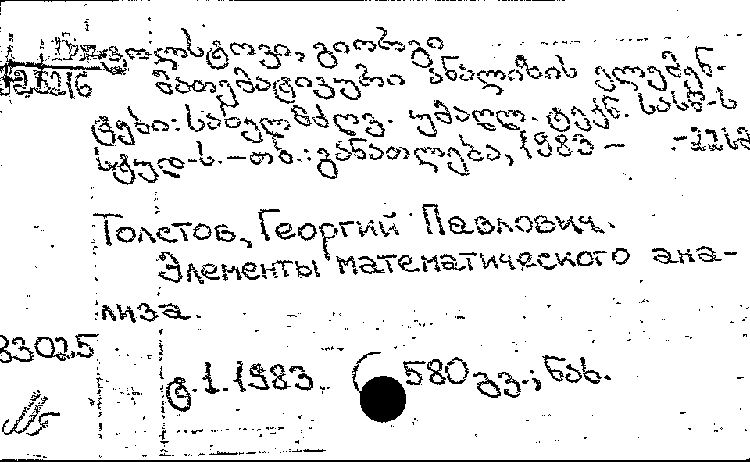 ტოლსტოვი, გიორგი
მათემატიკური ანალიზის ელემენ-
ტები: სახელმძღვ. უმაღლ. ტექნ. სასწ-ს
სტუდ-ს. – თბ.: განათლება, 1983 –
Толстов, Георгий Павлович.
Элементы математического ана-
лиза.
83025
ტ. 1. 1983. 580 გვ.; ნახ.